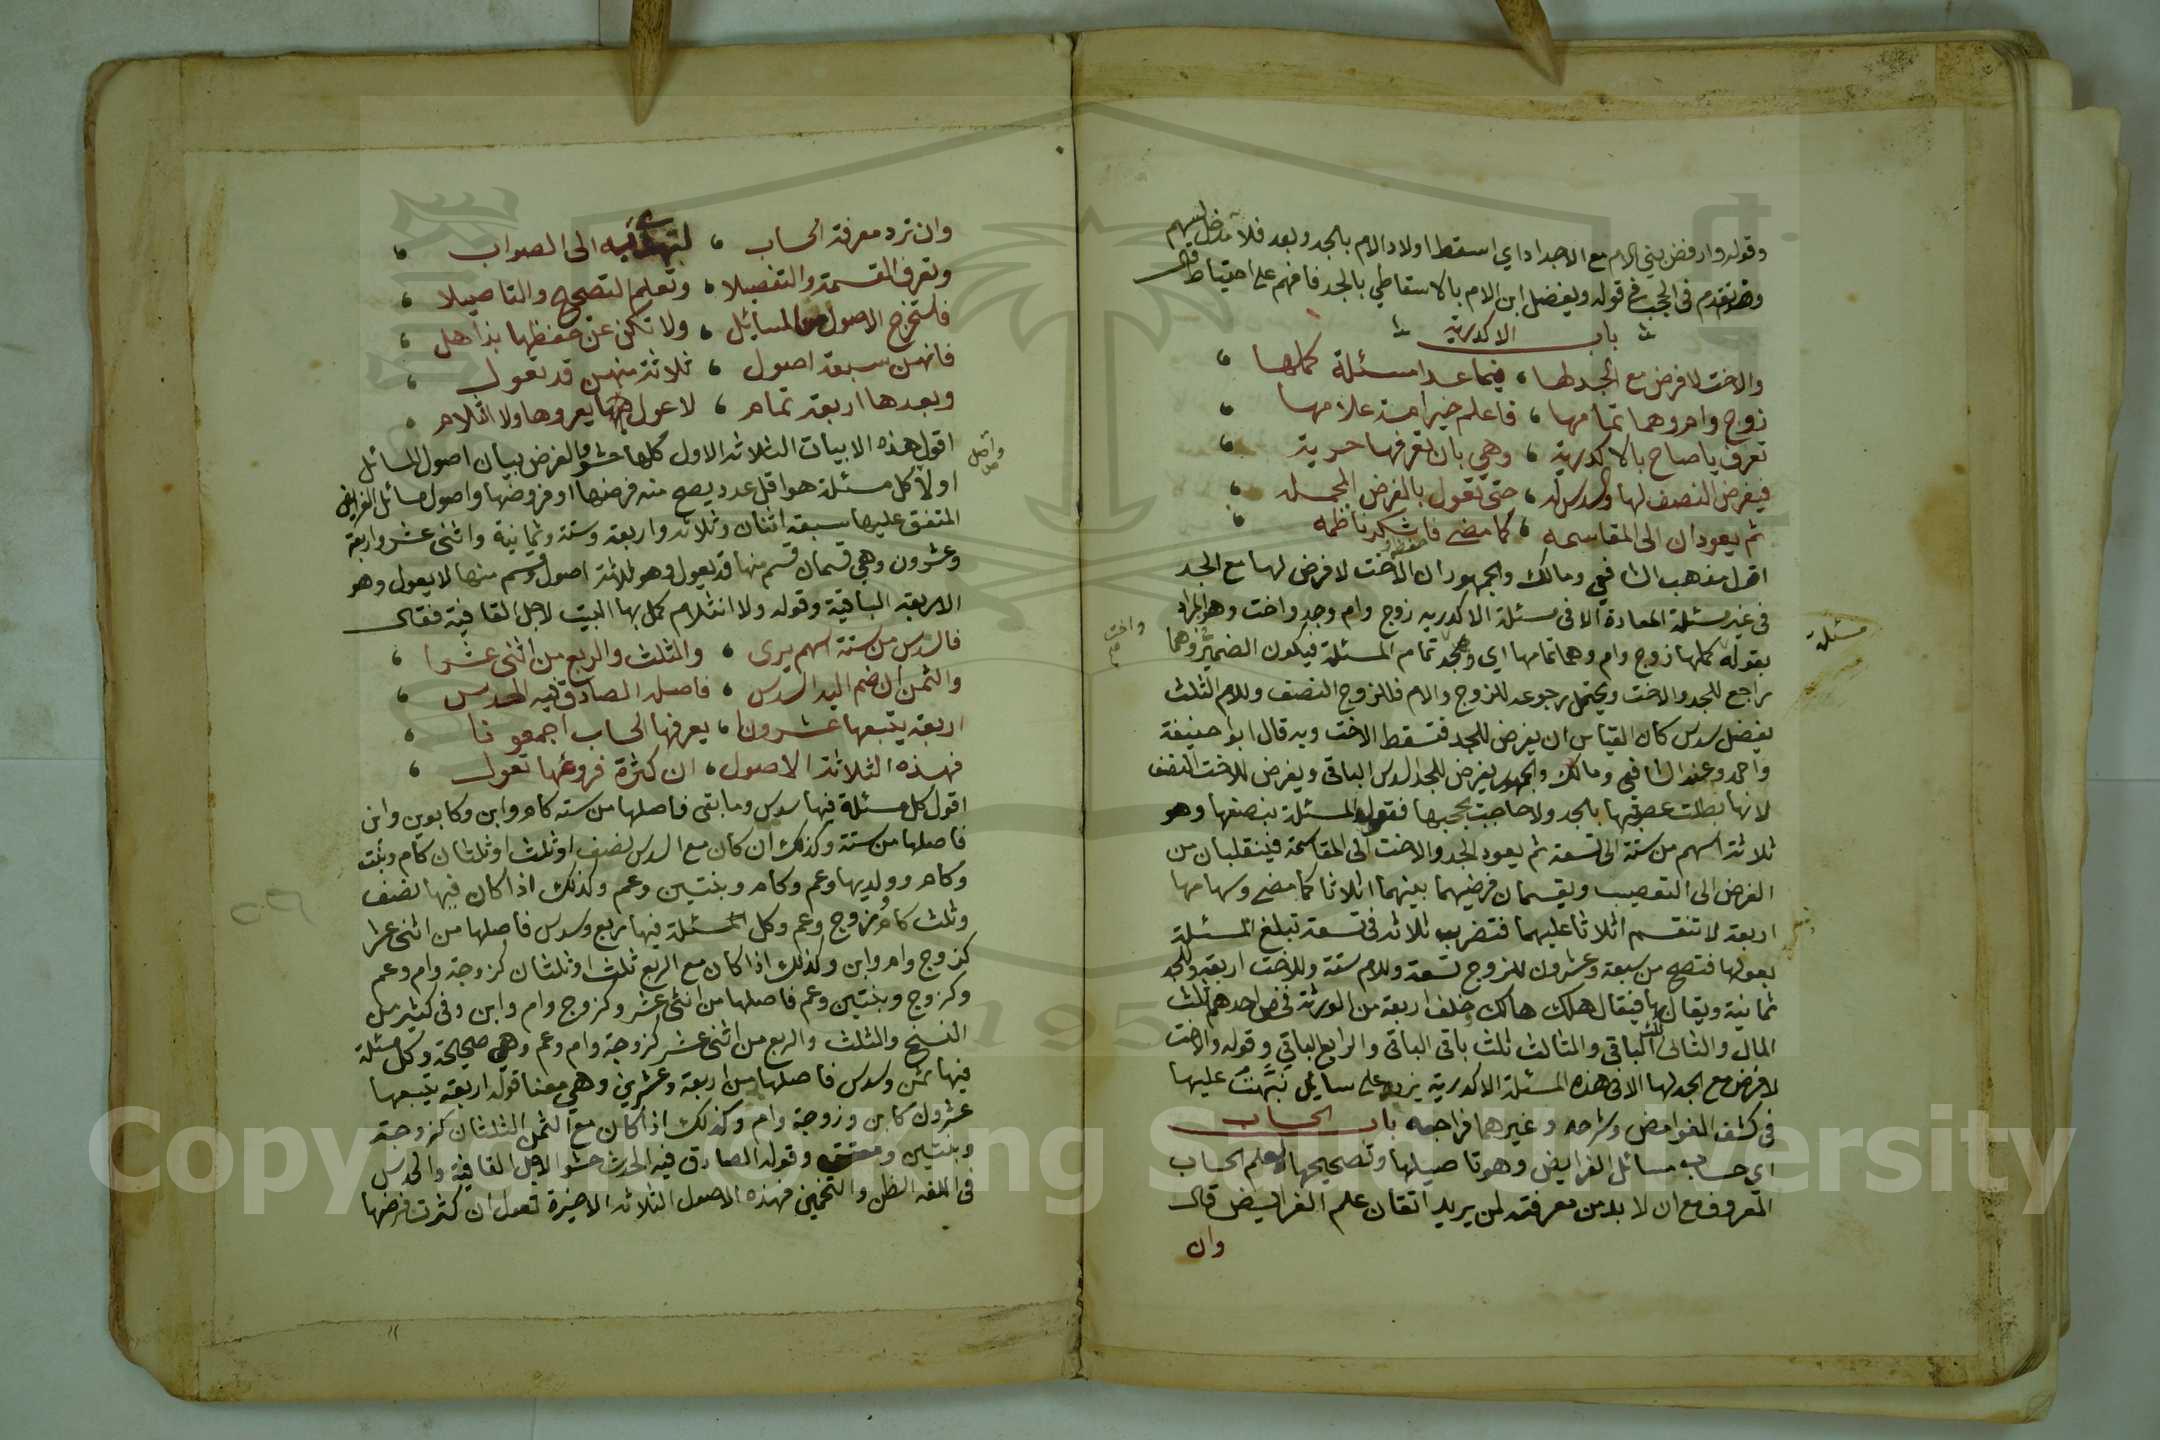 وقوله وارفض بني الام مع الاجداد اي اسقط اولاد الام بالجد وبعد فلا مدخل لهم
وقد تقدم في الحجب في قوله ويفضل ابن الام بالاسقاطي بالجد فافهم على احتياط قال
باب الاكدرية
والاخت لا فرض مع الجد لها ، فيما عدا مسئلة كملها
زوج وام وهما تمامها ، فاعلم فخير امة علامها
تعرف يا صاح بالاكدرية ، وهي بان تعرفها حرية
فيفرض النصف لها والسدس له ، حتى تعول بالفرض المجملة
ثم يعودان الى المقاسمه ، كما مضى فاشكر ناظمه
حفظه و
اقول مذهب الشافعي ومالك والجمهور ان الاخت لا فرض لها مع الجد
في غير مسئلة المعادة الا في مسئلة الاكدريه زوج وام وجد واخت وهو المراد
مسئلة
واخت
بقوله كملها زوج وام وهما تمامها اي وجد تمام المسئلة فيكون الضمير وهما
راجع للجد والاخت ويحتمل رجوعه للزوج والام فللزوج النصف وللام الثلث
يفضل سدس كان القياس ان يفرض للجد فتسقط الاخت وبه قال ابو حنيفة
واحمد وعند الشافعي ومالك والجمهور يفرض للجد السدس الباقي ويفرض للاخت النصف
لانها بطلت عصوبتها بالجد ولا حاجب يحجبها فتعول المسئلة بنصفها وهو
ثلاثة اسهم من ستة الى تسعة ثم يعود الجد والاخت الى المقاسمة فينقلبان من
الفرض الى التعصيب ويقسمان فرضيهما بينهما اثلاثا كما مضى وسهامها
اربعة لا تنقسم اثلاثا عليهما فتضرب ثلاثة في تسعة تبلغ المسئلة
بعولها فتصح من سبعة وعشرون للزوج تسعة وللام ستة وللاخت اربعة وللجد
ثمانية ويقال بها فيقال هلك هالك خلف اربعة من الورثة فخص احدهم ثلث
المال والثاني ثلث الباقي والثالث ثلث باقي الباقي والرابع الباقي وقوله والاخت
لا فرض مع الجد لها الا في هذه المسئلة الاكدرية يرد على سايل نبهت عليها
في كشف الغوامض وشرحه وغيرهما فراجعه باب الحساب
اي حساب مسائل الفرايض وهو تاصيلها وتصحيحها لا علم الحساب
المعروف مع ان لا بد من معرفته لمن يريد اتقان علم الفرايض قال
وان
وان ترد معرفة الحساب ، لتهتدي فيه الى الصواب ،
وتعرف القسمة والتفصيلا ، وتعلم التصحيح والتاصيلا ،
فاستخرج الاصول في المسايل ، ولا تكن عن حفظها بذاهل ،
فانهن سبعة اصول ، ثلاثة منهن قد تعول ،
وبعدها اربعة تمام ، لا عول يعروها ولا انثلام ،
اقول هذه الابيات الثلاثة الاول كلها حشو والغرض بيان اصول المسائل
واصل
اولا كل مسئلة هو اقل عدد يصح منه فرضها او فروضها واصول مسائل الفرايض
المتفق عليها سبعة اثنان وثلاثة واربعة وستة وثمانية واثنى عشر واربعة
وعشرون وهي قسمان قسم منها قد يعول وهو ثلاثة اصول وقسم منها لا يعول وهو
الاربعة الباقية وقوله ولا انثلام كمل بها البيت لاجل القافية فقال
فالسدس من ستة اسهم يرى ، والثلث والربع من اثنى عشرا ،
والثمن ان ضم اليه السدس ، فاصله الصادق فيه الحدس ،
اربعة يتبعها عشرونا ، يعرفها الحساب اجمعونا ،
فهذه الثلاثة الاصول ، ان كثرة فروعها تعول ،
اقول كل مسئلة فيها سدس وما بقى فاصلها من سته كام وابن وكابوين وابن
فاصلها من ستة وكذلك ان كان مع السدس نصف او ثلث او ثلثان كام وبنت
وكام وولديها وعم وكام وبنتين وعم وكذلك اذا كان فيها نصف
وثلث كام وزوج وعم وكل مسئلة فيها ربع وسدس فاصلها من اثنى عشر
كزوج وام وابن وكذلك اذا كان مع الربع ثلث او ثلثان كزوجة وام وعم
وكزوج وبنتين وعم فاصلها من اثنى عشر وكزوج وام وابن وفي كثير من
النسخ والثلث والربع من اثنى عشر كزوجة وام وعم وهي صحيحة وكل مسئلة
فيها ثمن وسدس فاصلها من اربعة وعشرين وهي معنا قوله اربعة يتبعها
عشرون كابن وزوجة وام وكذلك اذا كان مع الثمن الثلثان كزوجة
وبنتين ومعتق وقوله الصادق فيه الحدث حشو لاجل القافية والحدس
في اللغه الظن والتخمين فهذه الاصول الثلاثة الاخيرة تعول ان كثرت فرضها
Copyright © King Saud University
1957